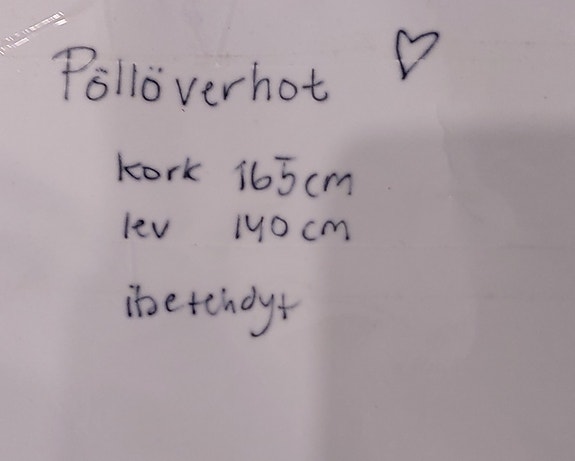 Pöllöverhot ♡
kork 165 cm
lev 140 cm
itsetehdyt